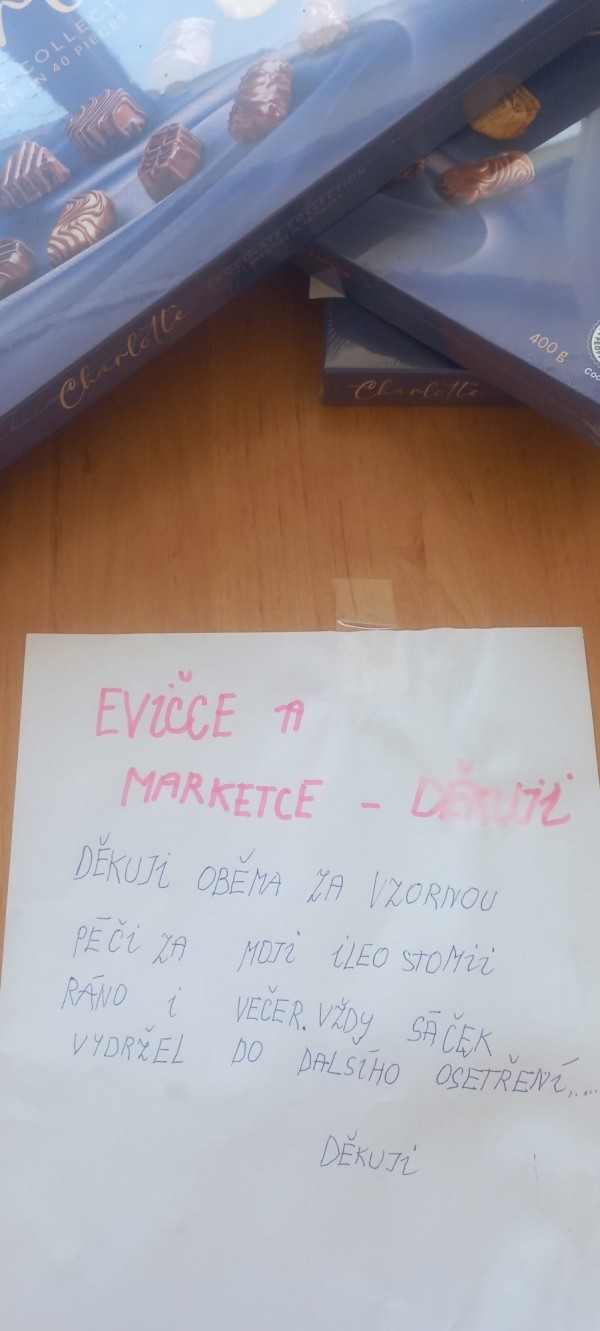 COLLECT
IN 40 PIECES
CHOCOLATE COLLECTION
Charlotte
400 g
Charlotte
EVIČCE A
MARKETCE - DĚKUJI
DĚKUJI OBĚMA ZA VZORNOU
PÉČI ZA MOJI ILEOSTOMII
RÁNO i VEČER. VŽDY SÁČEK
VYDRŽEL DO DALSÍHO OSETŘENÍ,....
DĚKUJI